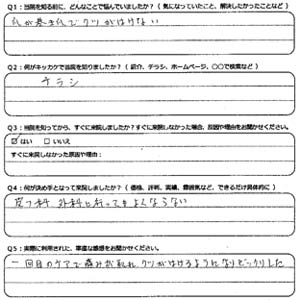 Q1：当院を知る前に、どんなことで悩んでいましたか？（気になっていたこと、解決したかったことなど）
爪が巻き爪でクツがはけない
Q2：何がキッカケで当院を知りましたか？（紹介、チラシ、ホームページ、○○で検索など）
チラシ
Q3：当院を知ってから、すぐに来院しましたか？すぐに来院しなかった場合、原因や理由をお聞かせください。
☑はい □いいえ
すぐに来院しなかった原因や理由：
Q4：何が決め手となって来院しましたか？（価格、評判、実績、雰囲気など、できるだけ具体的に）
皮フ科 外科に行ってもよくならない
Q5：実際に利用された、率直な感想をお聞かせください。
一回目のケアで痛みが取れ クツがはけるようになりビックリした